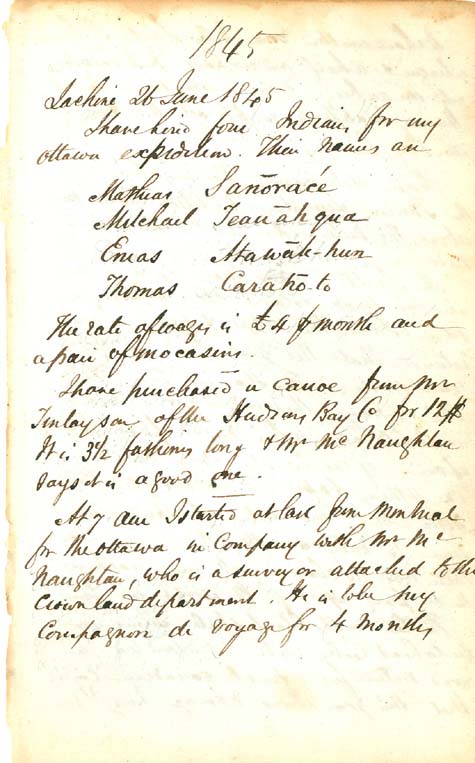 1845
Lachine 26 June 1845
I have hired four Indians for my
Ottawa expedition. Their names are
Mathias Sanōracé
Mitchael Teanāhqua
Enias Atawāk-hun
Thomas Caratō-to
The rate of wages is £4 ⅌ month and
a pair of mocasins.
I have purchased a canoe from Mr
Finlayson of the Hudsons Bay Co for 12$
It is 3½ fathoms long & Mr McNaughtan
says it is a good one.
At 7 AM I started at last from Montreal
for the Ottawa in Company with Mr Mc
Naughtan, who is a surveyor attached to the
Crown land department. He is to be my
Compagnon de voyage for 4 months